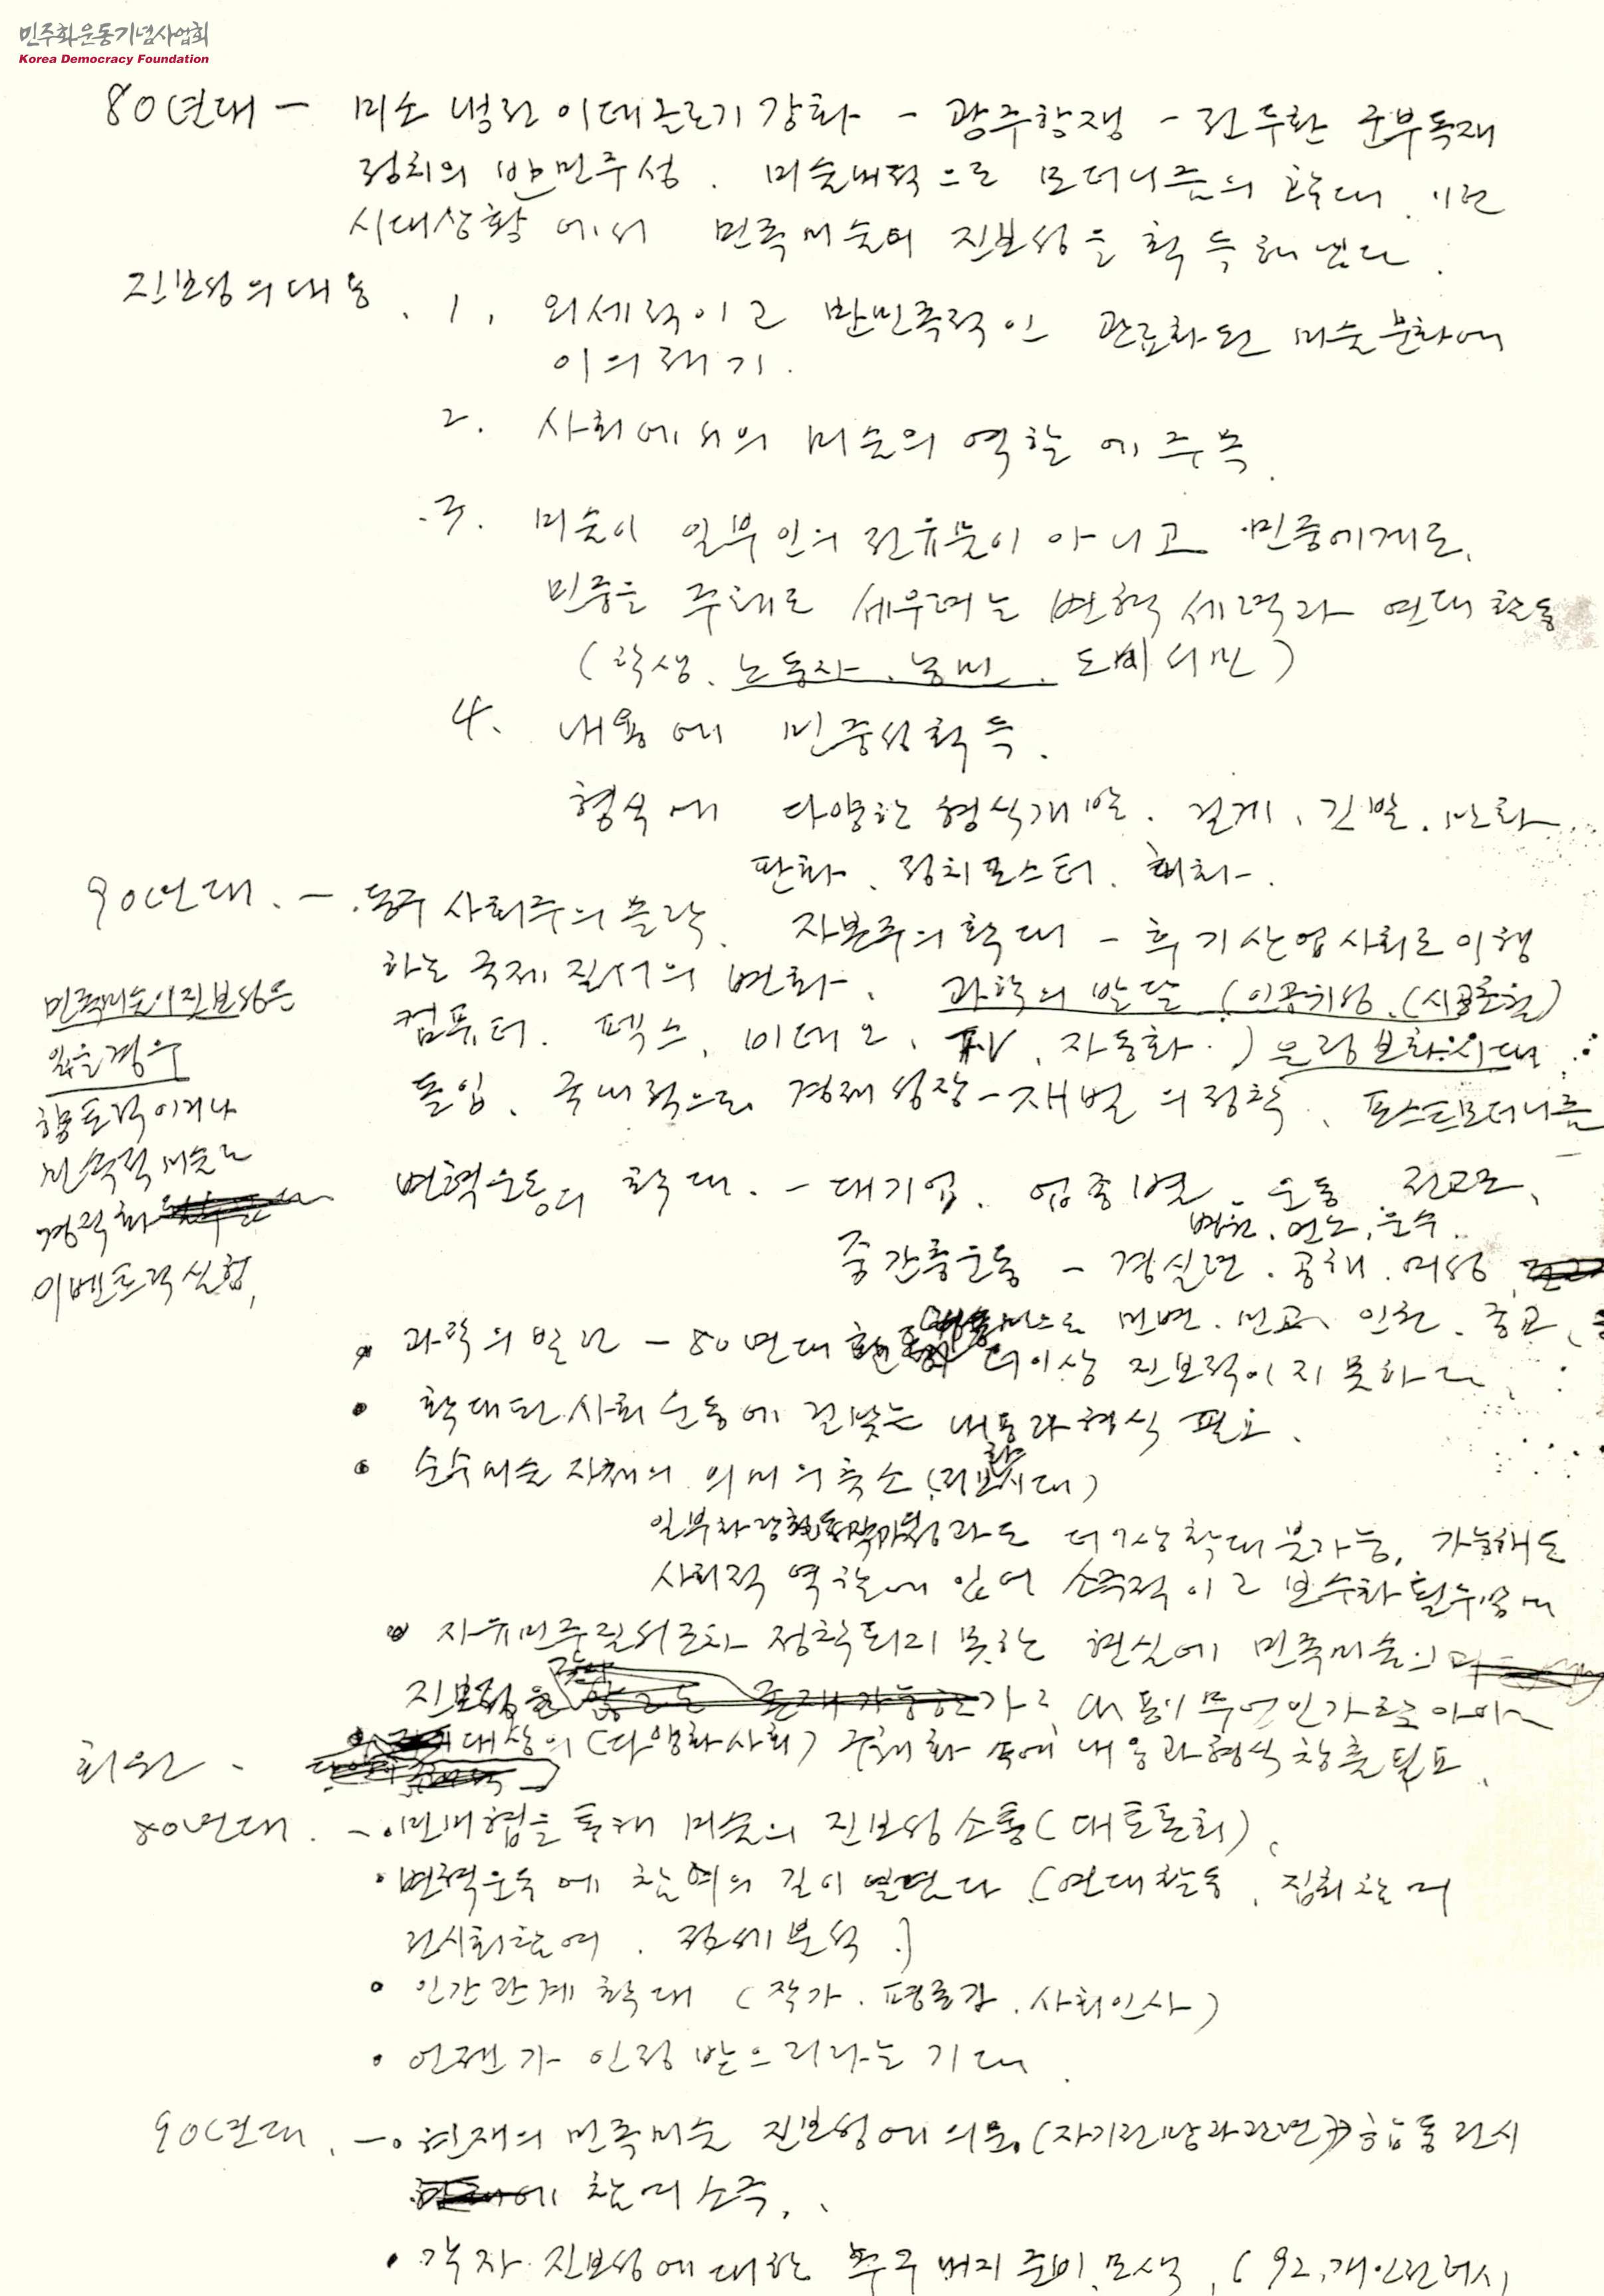 민주화운동기념사업회
Korea Democracy Foundation
80년대 - 미소 냉전 이데올로기 강화 - 광주항쟁 - 전두환 군부독재
정치의 반민주성. 미술내적으로 모더니즘의 확대. 이런
시대상황에서 민족미술의 진보성을 획득해 냈다.
진보성의 내용. 1. 외세적이고 반민족적인 관료화된 미술문화에
이의제기.
2. 사회에서의 미술의 역할에 주목.
3. 미술이 일부인의 전유물이 아니고 민중에게로.
민중을 주체로 세우려는 변혁세력과 연대활동
(학생. 노동자. 농민. 도시빈민)
4. 내용에 민중성획득.
형식에 다양한 형식개발. 걸게, 깃발. 만화
판화. 정치포스터. 회화.
90년대. - 동구 사회주의 몰락. 자본주의확대 - 후기산업사회로 이행
하는 국제질서의 변화. 과학의 발달 (인공위성.
컴퓨터. 펙스. 비데오. TV. 자동화.) 으로 정보화시대
돌입. 국내적으로 경제성장-재벌의 정착. 포스트모더니즘
민족미술의 진보성은
향토적이거나
민속적 미술로
경직화
이벤트적 실험.
변혁운동의 확대. - 대기업. 업종별 운동 전교조,
병원. 언노.
중간층운동 - 경실련. 공해. 여성
민변. 민교. 인권. 종교.
과학의 발달 - 80년대 더이상 진보적이지 못하다.
• 확대된 사회운동에 걸맞는 내용과 형식 필요.
• 순수미술 자체의 의미의 축소 (정보화시대)
더이상 확대 불가능. 가능해도
사회적 역할에 있어 소극적이고 보수화 될 수밖에
• 자유민주질서조차 정착되지 못한 현실에 민족미술의
진보성을 내용이 무엇인가를 찾아야
대상의 (다양화사회) 구체화 속에 내용과 형식 창출 필요.
회원 -
80년대. - 민미협을 통해 미술의 진보성 소통 (대토론회).
• 변혁운동에 참여의 길이 열린다 (연대활동. 집회참여
전시회참여. 정세분석.)
• 인간관계 확대 (작가. 평론가. 사회인사)
• 언젠가 인정받으리라는 기대.
90년대. - • 현재의 민족미술 진보성에 의문. (자기전망과 관련) 합동전시
참여 소극.
• 각자 진보성에 대한 추구 준비 모색. (92. 개인전러시